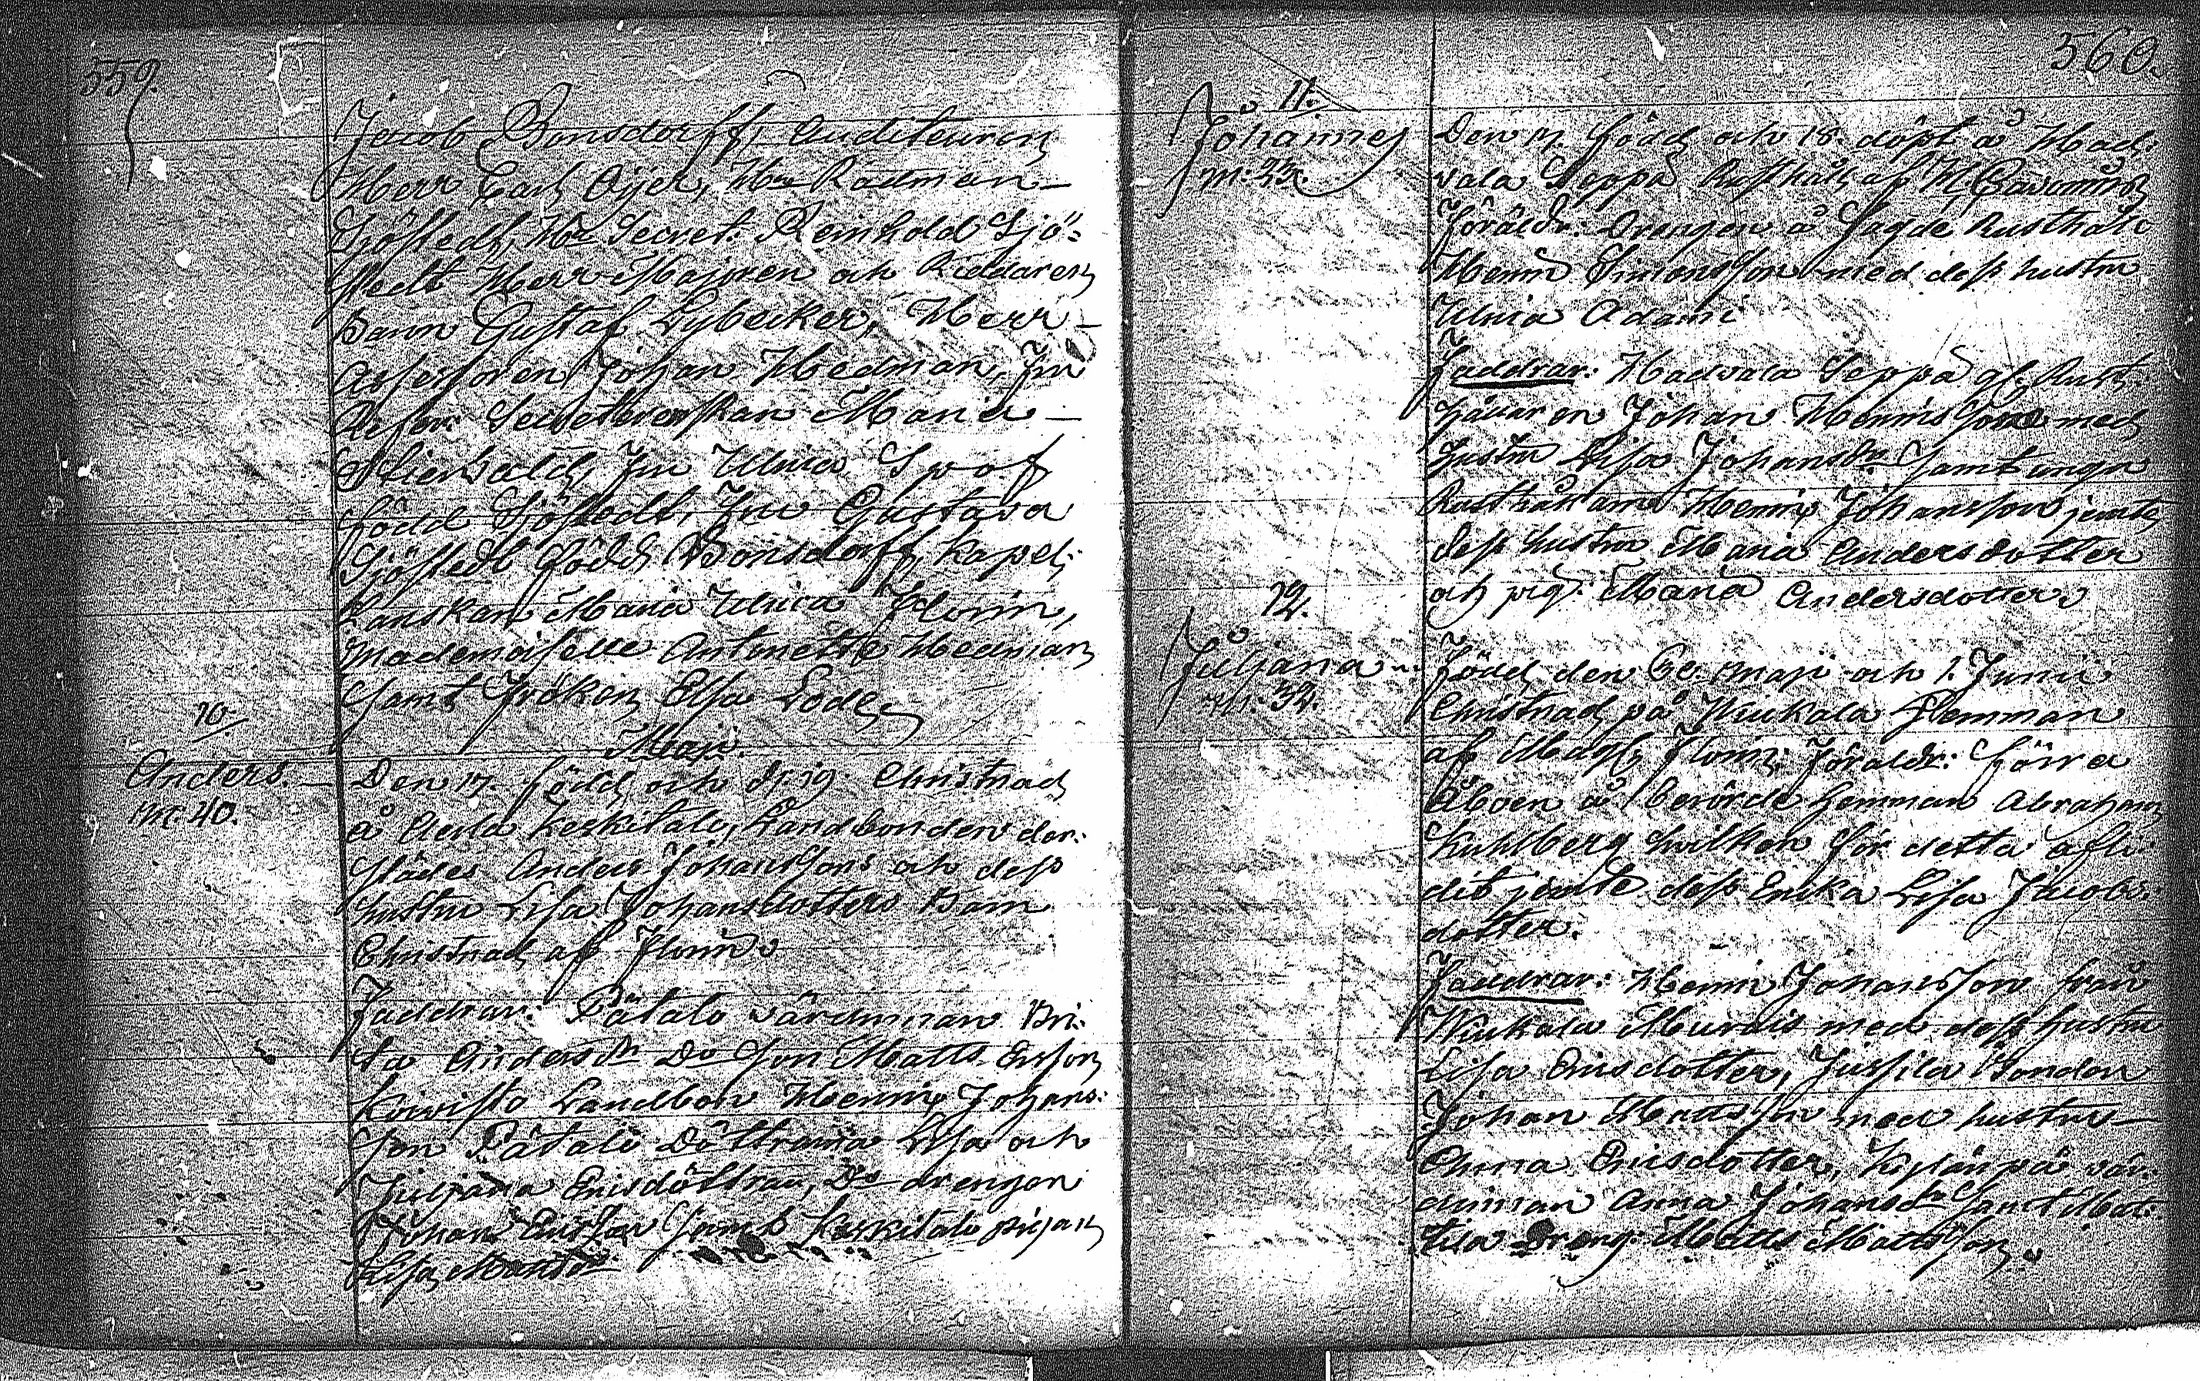 559.
Jacob Bonsdorff, Auditeuren
Herr Carl Öijer, Hr Rådman
Sjöstedt, Hr Secret. Reinhold Sjö-
stedt Herr Majoren och Riddaren
Baron Gustaf Lybecker, Herr
Assessoren Johan Hedman, Fru
Maria
Fru Ulrica
född Sjöstedt, Fru Gustava
Sjöstedt född Bonsdorff, Kapel-
lanskan Maria Ulrica Florin,
Mademoiselle Antoinette Hedman
samt Fröken Elsa Lode.
Maji
10.
Anders.
m: 40.
Den 17. född och d. 19 Christnad
å Aerla Keskitalo, Landbonden der-
städes Anders Johanssons och dess
hustru Lisa Johansdotters Barn
Christnad af Florin
Faddrar: Pätalo värdinnan Bri-
ta Andersdr Do Son Matts Ersson
Koivisto Landbon Henric Johans-
son Pätalo Döttrarna Lisa och
Juljana Ericsdöttrar, Do drengen
Johan Ericsson samt Keskitalo pigan
Lisa
560.
11.
Johannes
m: 23.
Den 17. född och 18. döpt å Had-
vala Seppä Rusthåll af
Föräldr: Drengen å Sagde Rusthåll
Henric Simonsson med dess hustru
Ulrica Adami
Faddrar: Hadvala Seppä gl. Rust-
hållaren Johan Henricsson med
hustru Lisa Johansdr samt unga
Rusthållaren Henric Johansson jemte
dess hustru Maria Andersdotter
och pig. Maria Andersdotter
12.
Juljana
m: 32.
Född den 30. maji och 1. Junii
Christnad på Wiukala Hemman
af Florin. Föräldr: förra
Åboen å berörde hemman Abraham
Kuhlberg hvilken för detta afli-
dit jemte dess Enka Lisa Jacobs-
dotter.
Faddrar: Henric Johansson från
Wiukala med dess hustru
Lisa Ericsdotter, Jussila Bonden
Johan Mattsson med hustru
Anna Ericsdotter, Kylänpä vär-
dinnan Anna Johansdr samt Mat-
tila Dreng: Matts Mattsson